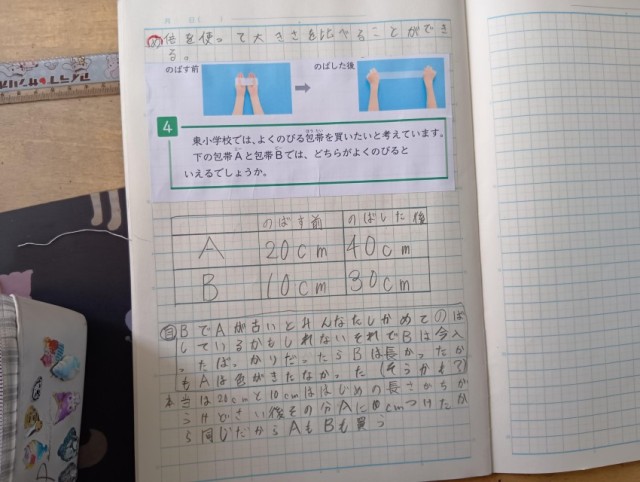 め 倍を使って大きさを比べることができ
る。
のばす前 のばした後
4
東小学校では、よくのびる包帯を買いたいと考えています。
下の包帯Aと包帯Bでは、どちらがよくのびると
いえるでしょうか。
のばす前 のばした後
A 20cm 40cm
B 10cm 30cm
自 BでAが古いとみんなたしかめてのば
しているかもしれないそれでBは今入
ったば、かりだったらBは長かったか
もAは色がきたなかった(そうかも?)
本当は20cmと10cmははじめの長さがちが
うけどさい後その分Aに10cmつけたか
ら同じだからAもBも買う